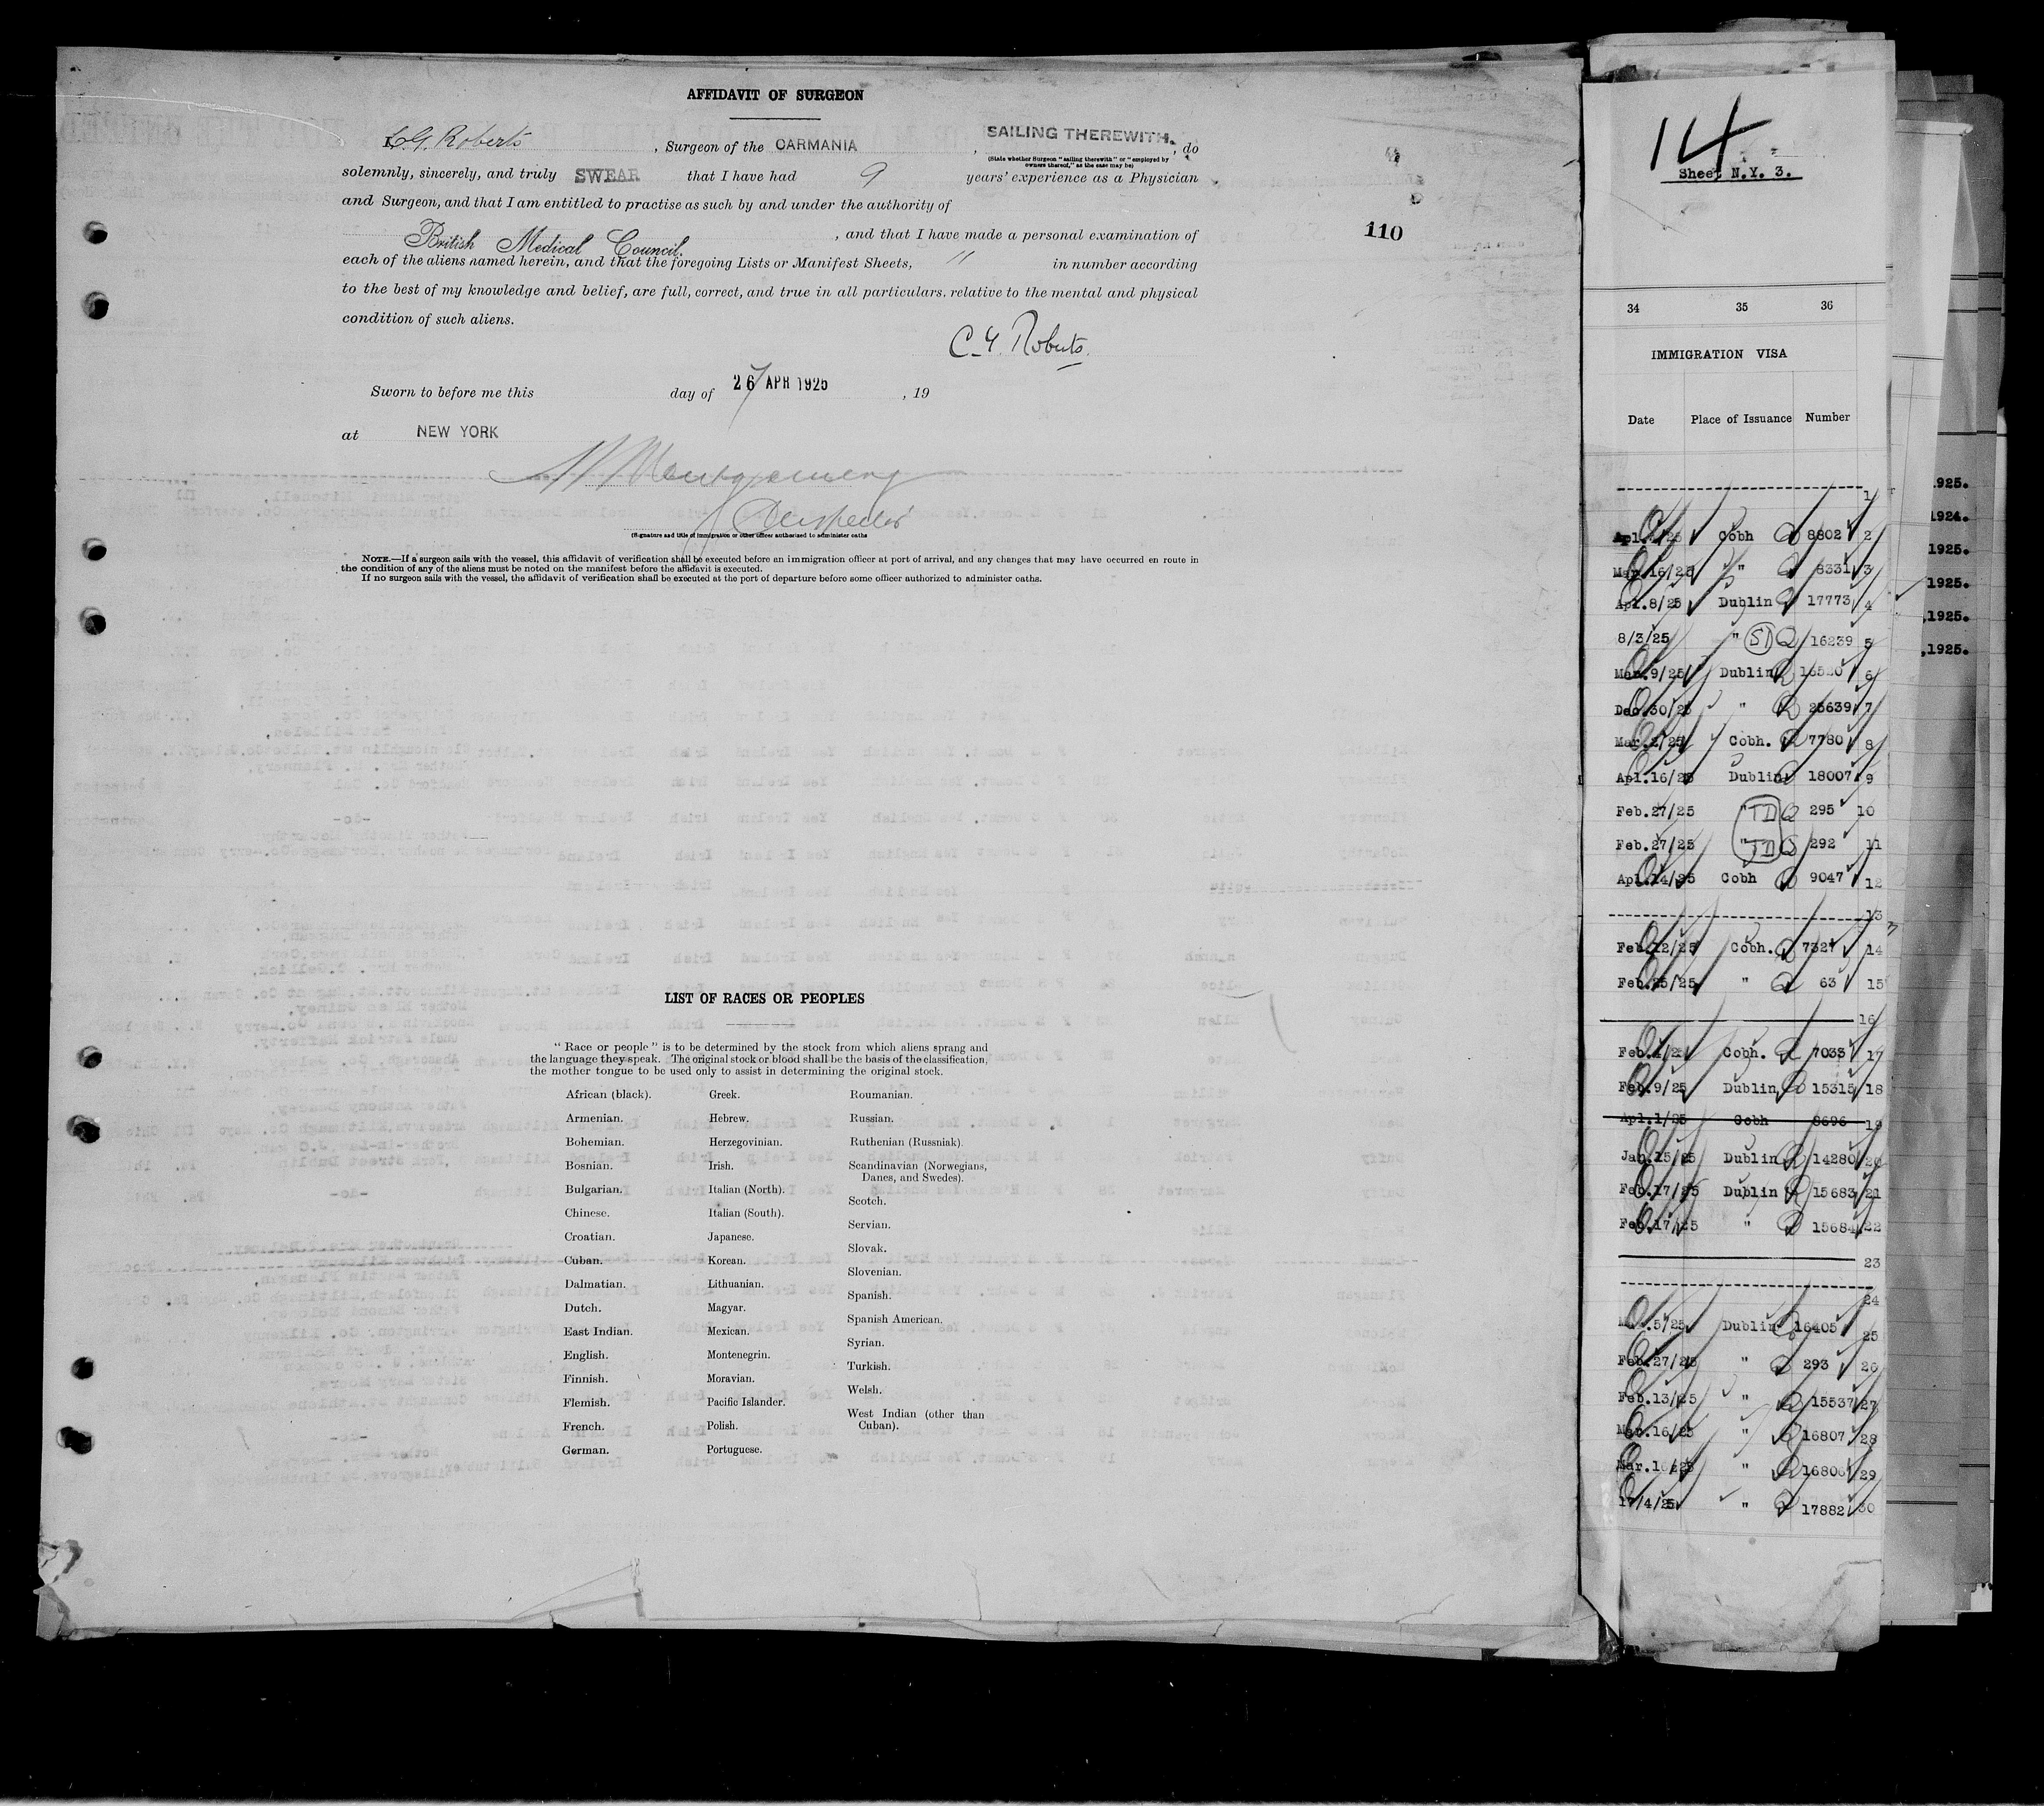 AFFIDAVIT OF SURGEON
I, C.G. Roberts, Surgeon of the CARMANIA, SAILING THEREWITH., do
(State whether Surgeon "sailing therewith" or "employed by
owners thereof," as the case may be)
solemnly, sincerely, and truly SWEAR that I have had 9 years' experience as a Physician
and Surgeon, and that I am entitled to practise as such by and under the authority of
British Medical Council., and that I have made a personal examination of
110
each of the aliens named herein, and that the foregoing Lists or Manifest Sheets, 11 in number according
to the best of my knowledge and belief, are full, correct, and true in all particulars, relative to the mental and physical
condition of such aliens.
C. G. Roberts.
Sworn to before me this day of 27 APR 1925, 19
at NEW YORK
Montgomery
Inspector
(Signature and title of immigration or other officer authorized to administer oaths
NOTE.—If a surgeon sails with the vessel, this affidavit of verification shall be executed before an immigration officer at port of arrival, and any changes that may have occurred en route in
the condition of any of the aliens must be noted on the manifest before the affidavit is executed.
If no surgeon sails with the vessel, the affidavit of verification shall be executed at the port of departure before some officer authorized to administer oaths.
LIST OF RACES OR PEOPLES
"Race or people" is to be determined by the stock from which aliens sprang and
the language they speak. The original stock or blood shall be the basis of the classification,
the mother tongue to be used only to assist in determining the original stock.
African (black).
Armenian.
Bohemian.
Bosnian.
Bulgarian.
Chinese.
Croatian.
Cuban.
Dalmatian.
Dutch.
East Indian.
English.
Finnish.
Flemish.
French.
German.
Greek.
Hebrew.
Herzegovinian.
Irish.
Italian (North).
Italian (South).
Japanese.
Korean.
Lithuanian.
Magyar.
Mexican.
Montenegrin.
Moravian.
Pacific Islander.
Polish.
Portuguese.
Roumanian.
Russian.
Ruthenian (Russniak).
Scandinavian (Norwegians,
Danes, and Swedes).
Scotch.
Servian.
Slovak.
Slovenian.
Spanish.
Spanish American.
Syrian.
Turkish.
Welsh.
West Indian (other than
Cuban).
14
Sheet N.Y. 3.
34 35 36
IMMIGRATION VISA
Date Place of Issuance Number
1
Apl. /25 Cobh Q 8802 2
Mar.16/25 " Q 8331 3
Apl.8/25 Dublin Q 17773 4
8/3/25 " SD Q 16239 5
Mar.9/25 Dublin Q 16520 6
Dec.30/25 " Q 25639 7
Mar.2/25 Cobh. Q 7780 8
Apl.16/25 Dublin 18007 9
Feb.27/25 " TD Q 295 10
Feb.27/25 " TD Q 292 11
Apl.14/25 Cobh Q 9047 12
13
Feb.12/25 Cobh. Q 7327 14
Feb.25/25 " Q 63 15
16
Feb.4/2 Cobh. Q 7033 17
Feb.9/25 Dublin Q 15315 18
Apl.1/25 Cobh 8696 19
Jan.15/25 Dublin Q 14280 20
Feb.17/25 Dublin Q 15683 21
Feb.17/25 " Q 15684 22
23
24
Mar.5/25 Dublin Q 16405 25
Feb.27/25 " Q 293 26
Feb.13/25 " Q 15537 27
Mar.16/25 " Q 16807 28
Mar.16/25 " Q 16806 29
17/4/25 " Q 17882 30
1925.
1924.
1925.
1925.
,1925.
,1925.